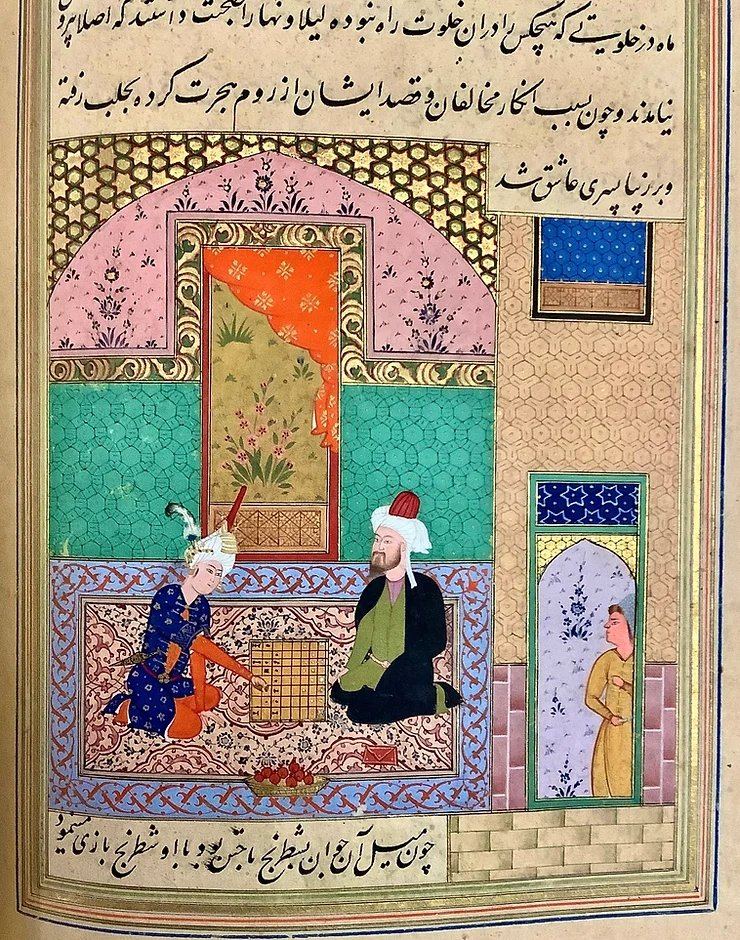 ماه در خلوتی که هیچکس را دران خلوت راه نبوده لیلا و نهارا صحبت داشتند که اصلا بیرون
نیامدند و چون بسبب انکار مخالفان و قصد ایشان از روم هجرت کرده بحلب رفته
و بر زیبا پسری عاشق شد
چون میل آن جوان بشطرنج باختن بود با او شطرنج بازی مینمود